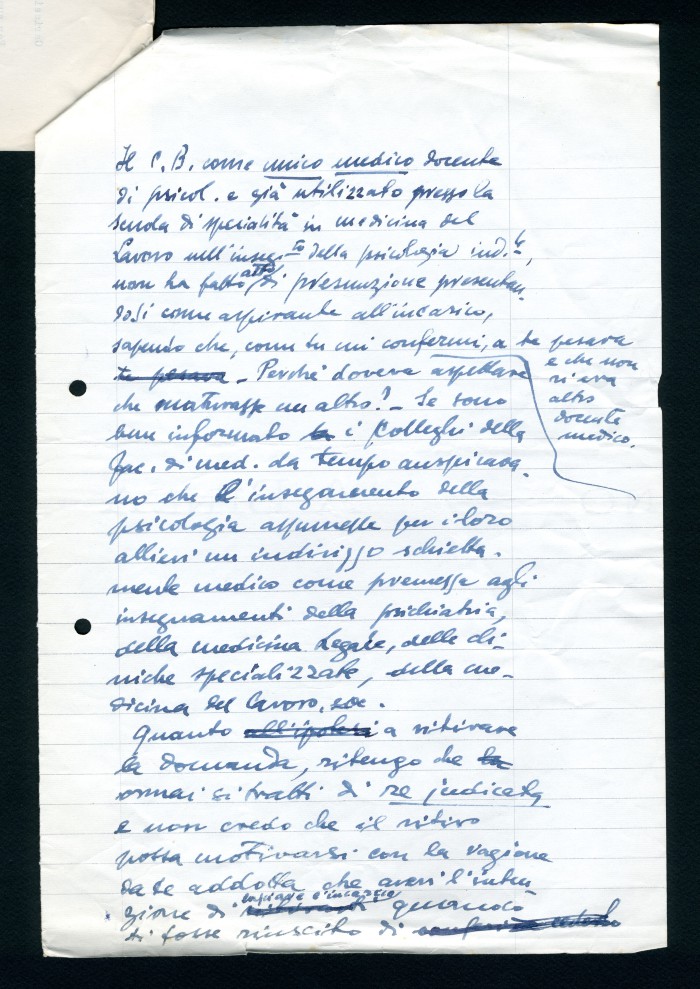 Il C. B. come unico medico docente
di psicol. e già utilizzato presso la
scuola di specialità in medicina del
Lavoro nell'inseg.to della psicologia ind.le,
non ha fatto atto di presunzione presentan-
dosi come aspirante all'incarico,
sapendo che, come tu mi confermi, a te pesava
e che non
vi era
altro
docente
medico.
te pesava - Perché doveva aspettare
che maturasse un altro? - Se sono
bene informato i Colleghi della
Fac. di med. da tempo auspicava-
no che l'insegnamento della
psicologia assumesse per i loro
allievi un indirizzo schietta-
mente medico come premessa agli
insegnamenti della psichiatria,
della medicina Legale, delle cli-
niche specializzate, della me-
dicina del lavoro, ecc.
Quanto all'ipotesi a ritirare
la domanda, ritengo che
ormai si tratti di re judicata
e non credo che il ritiro
possa motivarsi con la ragione
da te addotta che avevi l'inten-
zione di lasciare l'incarico quando
ti fosse riuscito di